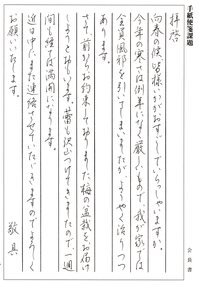 手紙便箋課題
拝啓
向春の候 皆様がいかがおすごしでいらっしゃいますか。
今年の寒さは例年になく厳しいもので、我が家では
全員風邪を引いてしまいましたが、ようやく治りつつ
あります。
さて、前からお約束しておりました、梅の盆栽をお届け
しようと思います。蕾も沢山つけてきましたので、一週
間も経てば満開になります。
近日中にまた連絡させていただきますのでよろしく
お願いいたします。
敬具